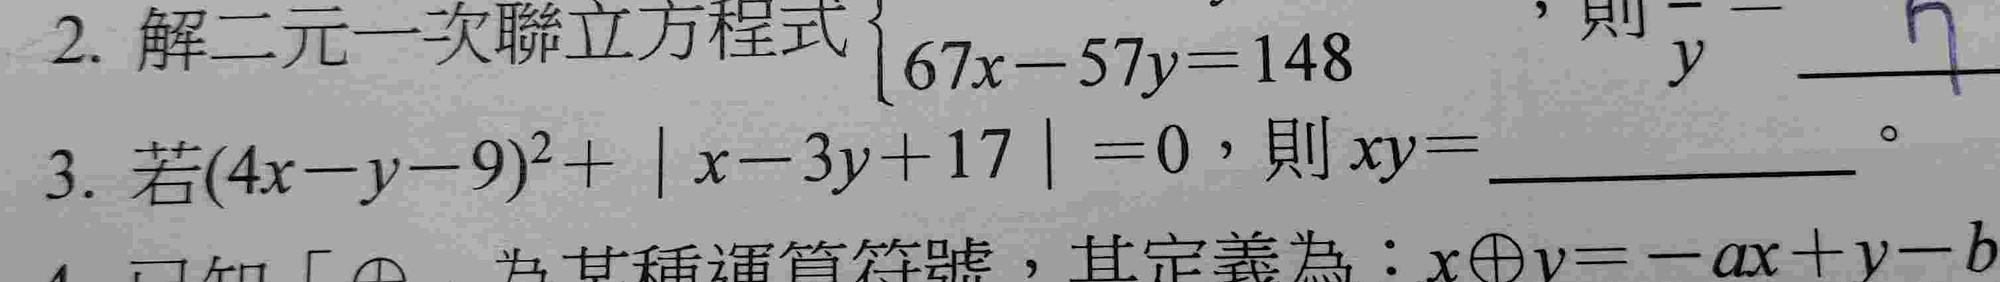 2. 解二元一次聯立方程式{67x－57y＝148 ，則 y
3. 若(4x－y－9)²＋｜x－3y＋17｜＝0，則 xy＝＿＿＿＿。
已知「⊕」為某種運算符號，其定義為：x⊕y＝－ax＋y－b